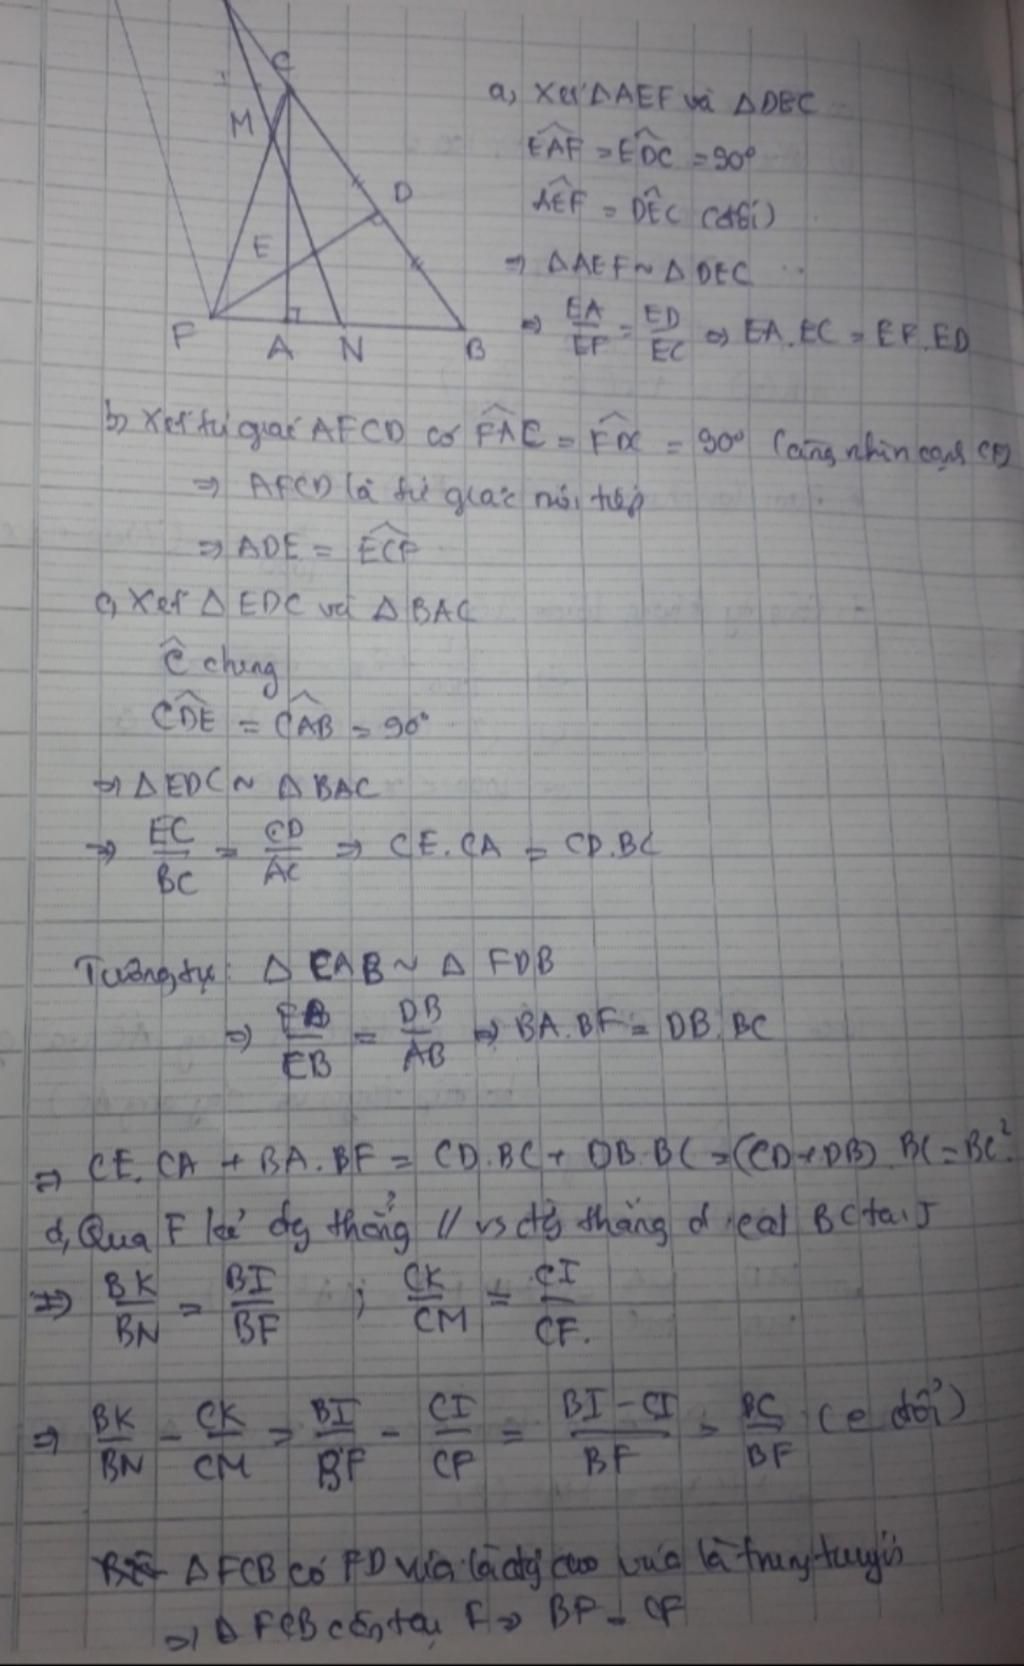 C
M
D
E
F A N B
a, Xét ΔAEF và ΔDEC
$\widehat{EAF} = \widehat{EDC} = 90°$
$\widehat{AEF} = \widehat{DEC}$ (đối)
⇒ ΔAEF ~ ΔDEC
⇒ $\frac{EA}{EF} = \frac{ED}{EC}$ ⇒ EA.EC = EF.ED
b, Xét tứ giác AFCD có $\widehat{FAC} = \widehat{FDC}$ = 90° (cùng nhìn cạnh CF)
⇒ AFCD là tứ giác nội tiếp
⇒ ADE = $\widehat{ECF}$
c, Xét Δ EDC và Δ BAC
$\widehat{C}$ chung
$\widehat{CDE} = \widehat{CAB}$ = 90°
⇒ Δ EDC ~ Δ BAC
⇒ $\frac{EC}{BC} = \frac{CD}{AC}$ ⇒ CE.CA = CD.BC
Tương tự: Δ EAB ~ Δ FDB
⇒ $\frac{FB}{EB} = \frac{DB}{AB}$ ⇒ BA.BF = DB.BC
⇒ CE.CA + BA.BF = CD.BC + DB.BC = (CD+DB).BC = BC²
d, Qua F kẻ đg thẳng // vs đg thẳng d cắt BC tại I
⇒ $\frac{BK}{BN} = \frac{BI}{BF}$ ; $\frac{CK}{CM} = \frac{CI}{CF}$.
⇒ $\frac{BK}{BN} - \frac{CK}{CM} = \frac{BI}{BF} - \frac{CI}{CF} = \frac{BI-CI}{BF} = \frac{BC}{BF}$
Δ FCB có FD vừa là đg cao vừa là trung tuyến
⇒ Δ FCB cân tại F ⇒ BF = CF